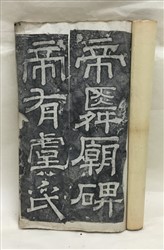 帝舜廟碑
帝有虞氏